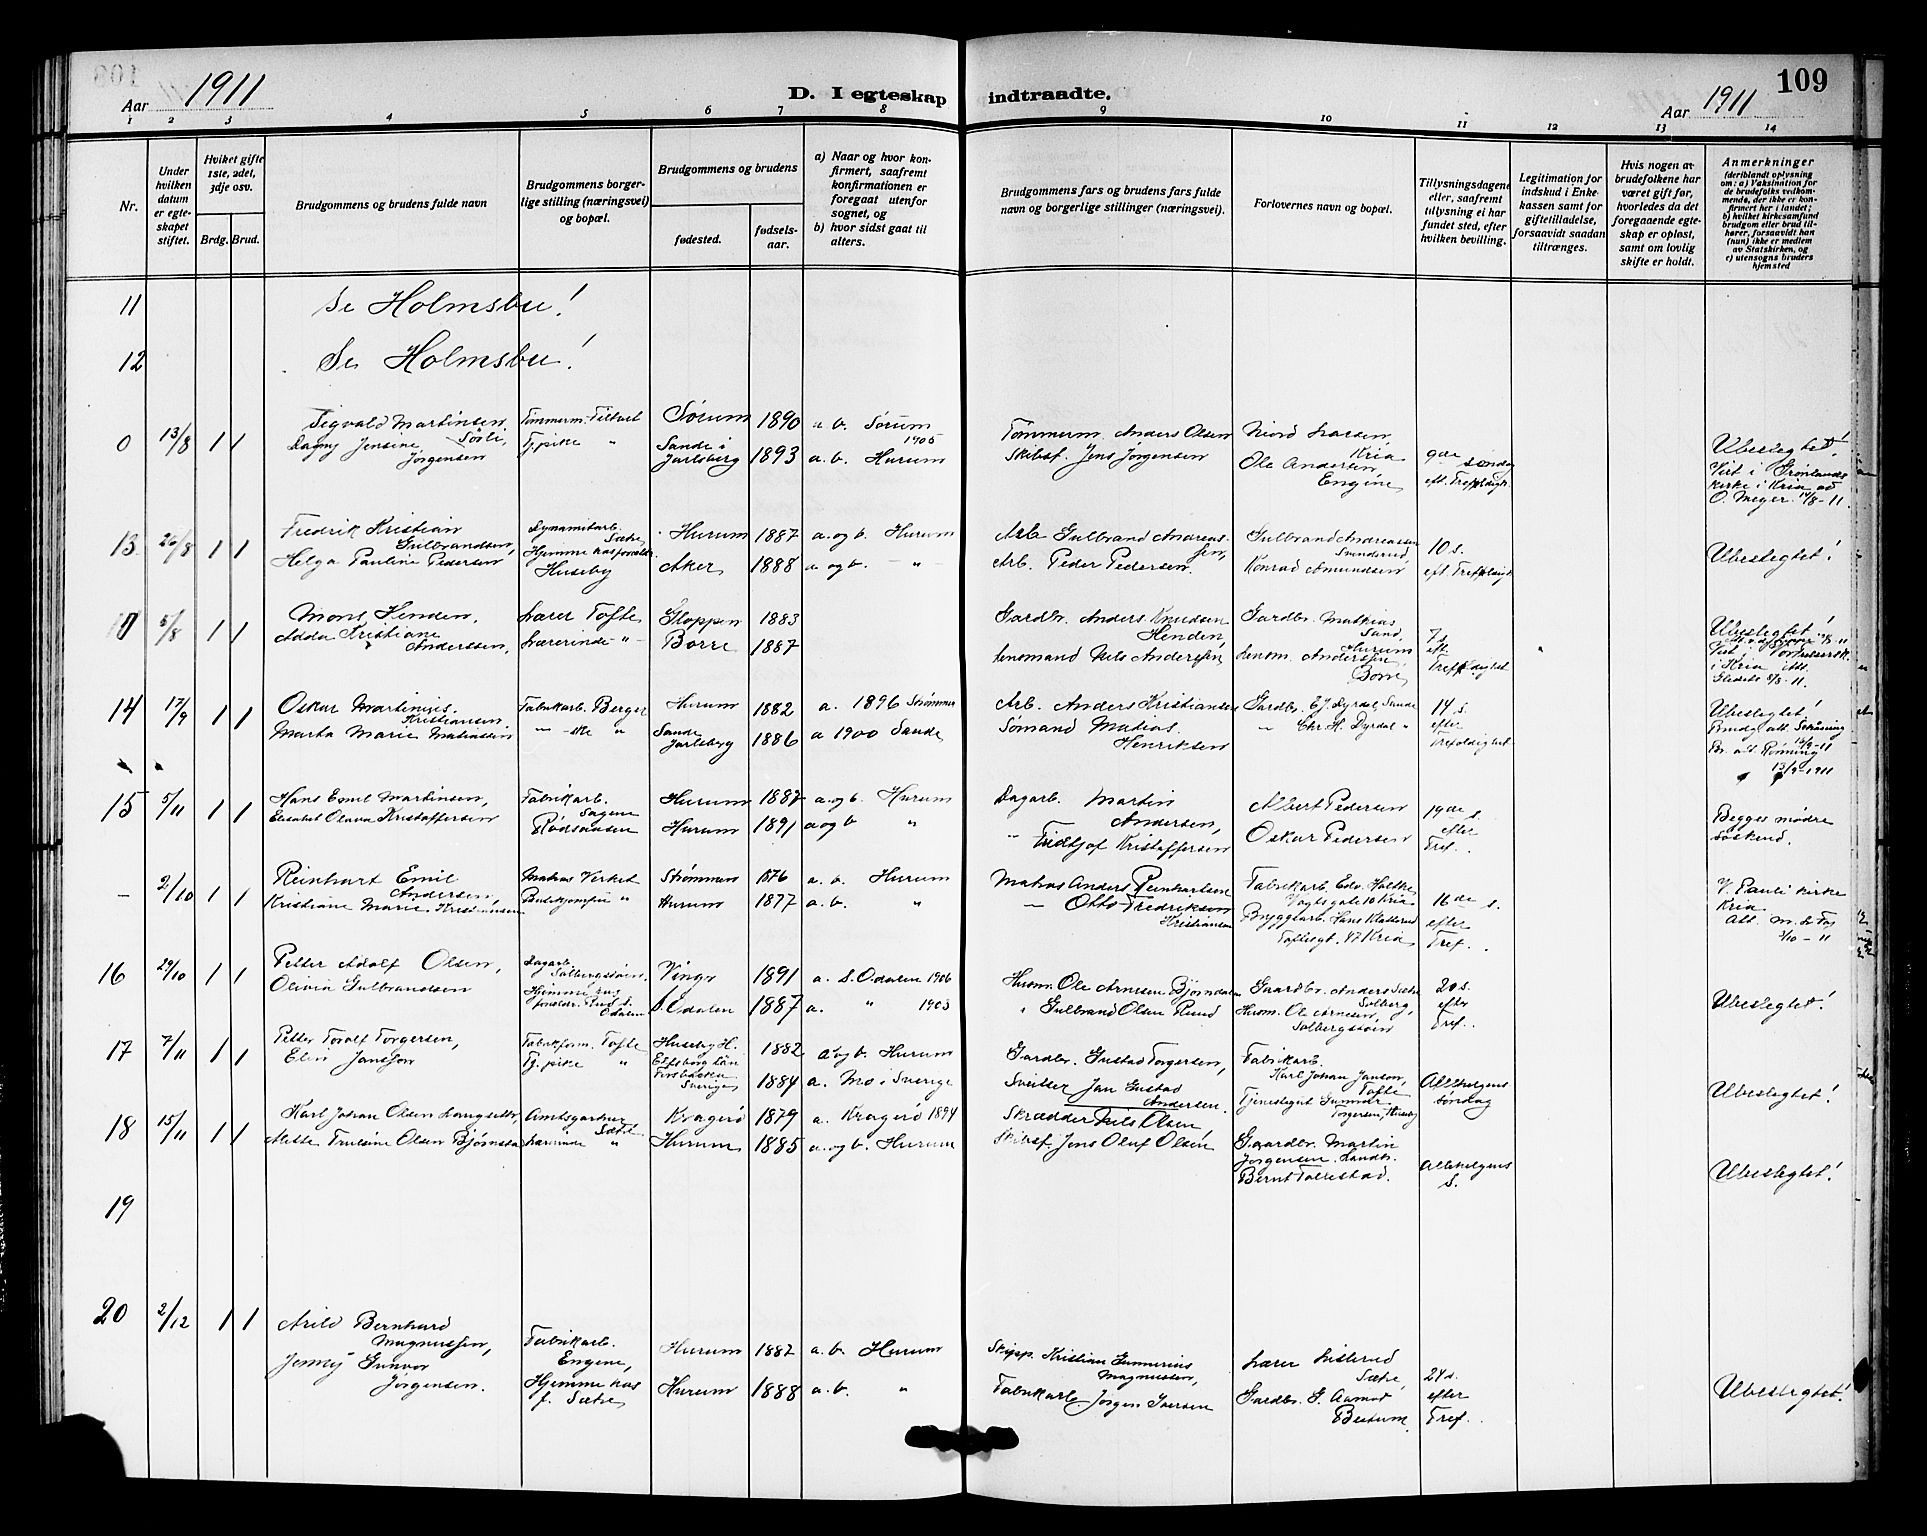 109
Aar 1911
D. I egteskap indtraadte.
Aar 1911
1 2 3 4 5 6 7 8 9 10 11 12 13 14
Nr.
Under hvilken datum er egteskapet stiftet.
Hvilket gifte 1ste, 2det, 3dje osv.
Brdg. Brud.
Brudgommens og brudens fulde navn
Brudgommens borgerlige stilling (næringsvei) og bopæl.
Brudgommens og brudens
fødested.
fødselsaar.
a) Naar og hvor konfirmert, saafremt konfirmationen er foregaat utenfor sognet, og
b) hvor sidst gaat til alters.
Brudgommens fars og brudens fars fulde navn og borgerlige stillinger (næringsvei).
Forlovernes navn og bopæl.
Tillysningsdagene eller, saafremt tillysning ei har fundet sted, efter hvilken bevilling.
Legitimation for indskud i Enkekassen samt for giftetilladelse, forsaavidt saadan tiltrænges.
Hvis nogen av brudefolkene har været gift før, hvorledes da det foregaaende egteskap er opløst, samt om lovlig skifte er holdt.
Anmerkninger (deriblandt oplysning om: a) Vaksination for de brudefolks vedkommende, der ikke er konfirmert her i landet; b) hvilket kirkesamfund brudgom eller brud tilhører, forsaavidt han (hun) ikke er medlem av Statskirken, og c) utensogns bruders hjemsted
11 Se Holmsbu!
12 Se Holmsbu!
0 13/8 1 1
Sigvald Martinsen Sørli,
Dagny Jensine Jørgensen
Tømmerm. Filtvet
Tj.pike "
Sørum 1890 a. b. Sørum 1905
Sande i Jarlsberg 1893 a. b. Hurum
Tømmerm. Anders Olsen
Skibsf. Jens Jørgensen
Larsen, Kria
Ole Andersen, Engene
9de søndag eft. Trefoldigh.
Ubeslegtet!
Viet i Grønlands kirke i Kria
O. Meyer 14/8-11.
13 26/8 1 1
Fredrik Kristian Gulbrandsen,
Helga Pauline Pedersen
Dynamitarb. Sætre
Hjemme hos forældr. Huseby
Hurum 1887 a. og b. Hurum
Aker 1888 a og b. - " -
Arb. Gulbrand Andreassen,
Arb. Peder Pedersen.
Gulbrand Andreassen
Konrad Amundsen
10 s. eft. Trefoldigh.
Ubeslegtet!
0 5/8 1 1
Mons Henden,
Adda Kristiane Anderssen,
Lærer Tofte
Lærerinde - " -
Gloppen 1883
Borre 1887
Gardbr. Anders Knudsen Henden
Lensmand Nils Anderssen
Gardbr. Mathias Sand, Hurum
Lensm. Anderssen Borre
7 s. eft. Trefoldighet
Ubeslegtet!
i Kria
5/8-11.
14 17/9 1 1
Oskar Martinius Kristiansen.
Marta Marie Matiasen
Fabrikarb. Berger
Hurum 1882 a. 1896 Strømmen
Sande Jarlsberg 1886 a 1900 Sande
Arb. Anders Kristiansen
Sømand Matias Henriksen
Gardbr. E.J. Dyrdal, Sande
" Chr. H. Dyrdal "
14 s. efter Trefoldighet
Ubeslegtet!
Br. att. Rønning
13/9-1911
15 5/11 1 1
Hans Emil Martinsen,
Elisabet Olava Kristoffersen
Fabrikarb. Sagene
Rødsaasen
Hurum 1887 a. og b. Hurum
Hurum 1891 a og b "
Dagarb. Martin Andersen,
" Fridtjof Kristoffersen
Albert Pedersen
Oskar Pedersen
19de s. efter Tref.
Begges mødre søskend.
- 2/10 1 1
Reinhart Emil Andersen,
Kristiane Marie Kristiansen
Matros Verket
Strømmen 1876 a. b. Hurum
Hurum 1877 a. b. "
Matros Anders Reinhartsen
" Otto Fredriksen Kristiansen
Fabrikarb. Edv. Holtke
Vogtsgate 10 Kria
Bryggearb. Hans Klasserud
Toftesgt. 47 Kria
16de s. efter Tref.
V. Pauli kirke Kria
2/10-11
16 29/10 1 1
Petter Adolf Olsen,
Olivia Gulbrandsen
Dagarb. Solbergstøen.
Hjemme hos foreldr. Rud S. Odalen
Vinger 1891 a. S. Odalen 1906
S. Odalen 1887 a. " 1903
Husm. Ole Arnesen Bjørndalen
" Gulbrand Olsen Rund
Gaardbr. Anders Sætre Solberg,
Husm. Ole Arnesen, Solbergstøen
20 s. efter Tref.
Ubeslegtet!
17 7/11 1 1
Petter Toralf Torgersen,
Elin Jansson
Fabrikform. Tofte
Tj. pike "
Huseby H. 1882 a og b. Hurum
Elfsborg län Sverige 1884 a. Mo i Sverige
Gardbr. Gustad Torgersen,
Sveitser Jan Gustad Andersen.
Fabrikarb. Karl Johan Janson, Tofte
Tjenestegut Gunnar Torgersen, Huseby
Allehelgens søndag
Ubeslegtet!
18 15/11 1 1
Karl Johan Olsen Langseth,
Mette Truline Olsen Bjørnstad
Amtsgartner Sætre
Lærerinde "
Kragerö 1879 a. Kragerö 1894
Hurum 1885 a. og b. Hurum
Skrædder Nils Olsen,
Skibsf. Jens Oluf Olsen
Gaardbr. Martin Jørgensen.
Bernt Tollefstad.
Allehelgens S.
Ubeslegtet!
19
20 2/12 1 1
Arild Bernhard Magnussen,
Jenny Gunvor Jørgensen.
Fabrikarb. Engene,
Hjemme hos f. Sætre
Hurum 1887 a. b. Hurum
Hurum 1888 a. b. "
Skipp. Kristian Gunnerius Magnussen,
Fabrikarb. Jørgen Iversen
Lærer Listerud Sætre
Gardbr. G. Aamot Bestum.
24 s. efter Tref.
Ubeslegtet!